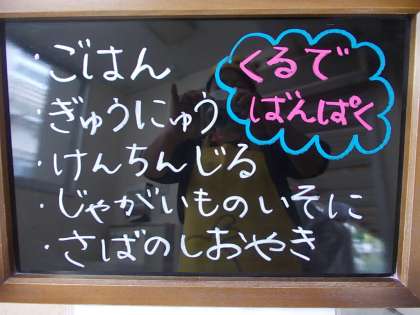 くるで
ばんぱく
・ごはん
・ぎゅうにゅう
・けんちんじる
・じゃがいものいそに
・さばのしおやき